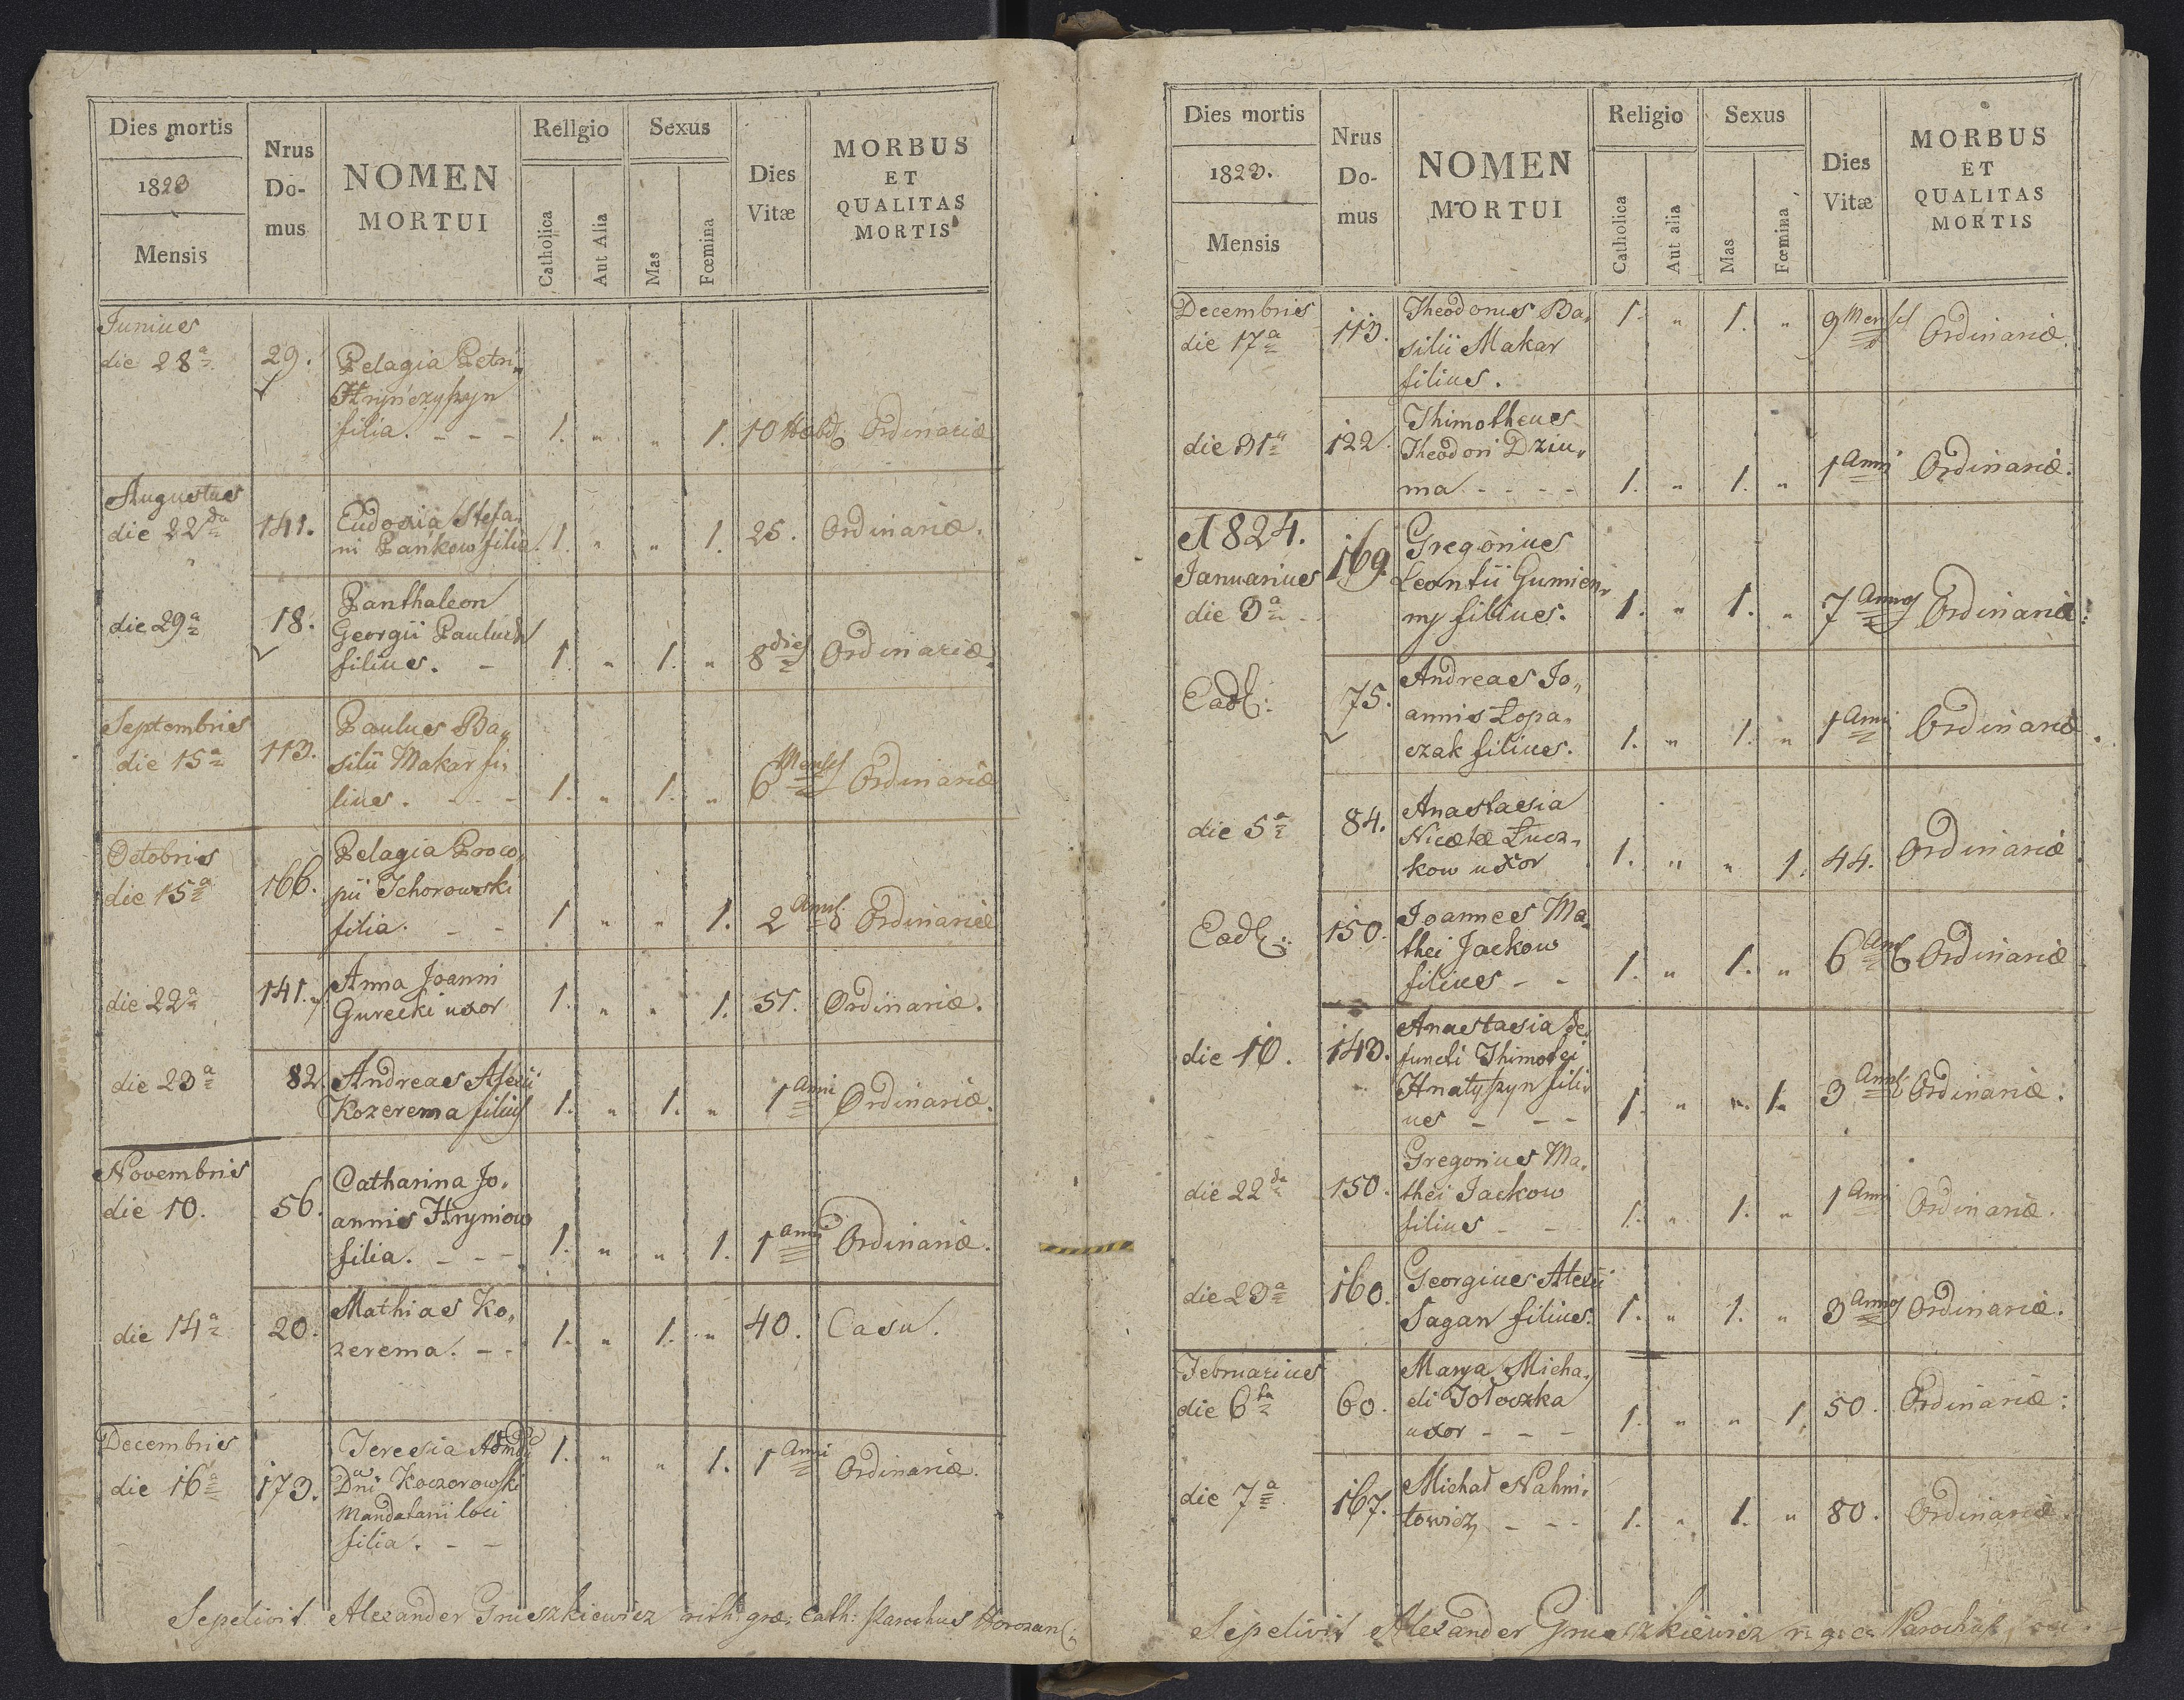 Dies mortis
1823
Mensis
Nrus Do- mus
NOMEN MORTUI
Rellgio
Catholica
Aut Alia
Sexus
Mas
Fœmina
Dies Vitæ
MORBUS ET QUALITAS MORTIS
Junius
die 28ª 29. Pelagia Petri
Hryńczyszyn
filia. - - - 1. " " 1. 10 Hebd. Ordinariæ
Augustus
die 22da 141. Eudoxia Stefa,
ni Pańkow filia. 1. " " 1. 25. Ordinariæ.
Panthaleon
die 29ª 18. Georgii
filius. - 1. " 1. " 8 dies Ordinariæ.
Septembris
die 15ª 113. Paulus Ba,,
silii Makar fi,
lius. - - - 1. " 1. " 6 Mens Ordinariæ
Octobris
die 15ª 166. Pelagia Proco,,
pii Ichorowski
filia. - - 1. " " 1. 2 Ann. Ordinariæ
die 22ª 141. Anna Joanni
Gurecki uxor 1. " " 1. 51. Ordinariæ.
die 23ª 82. Andreas Alexii
Kozerema filius 1. " 1. " 1 Anni Ordinariæ.
Novembris
die 10. 56. Catharina Jo,
annis Hryniow
filia. - - - 1. " " 1. 1 Anni Ordinariæ.
die 14ª 20. Mathias Ko,
zerema. - - 1. " 1. " 40. Casu.
Decembris
die 16ª 173. Teresia
Dni Koczorowski
Mandatarii loci
filia. - - 1. " " 1. 1 Anni Ordinariæ.
Sepelivit Alexander Gruszkiewicz rith: græ: Cath: Parochus
Dies mortis
1823.
Mensis
Nrus Do- mus
NOMEN MORTUI
Religio
Catholica
Aut alia
Sexus
Mas
Fœmina
Dies Vitæ
MORBUS ET QUALITAS MORTIS
Decembris
die 17ª 113. Theodorus Ba,
silii Makar
filius. 1. " 1. " 9 Mens Ordinariæ.
die 31ª 122. Thimotheus
Theodori Dziu,
ma. - - - - 1. " 1. " 1 Anni Ordinariæ.
1824.
Januarius
die 3ª 169. Gregorius
Leontii Gumien,
ny filius. 1. " 1. " 7 Annos Ordinariæ:
Ead: 75. Andreas Jo,,
annis Łopa,
czak filius. 1. " 1. " 1 Anni Ordinariæ.
die 5ª 84. Anastasia
Nicetæ Łucz,
kow uxor 1. " " 1. 44. Ordinariæ.
Ead: 150. Joannes Ma,
thei Jackow
filius - - 1. " 1. " 6 Ann Ordinariæ.
die 10. 143. Anastasia de,
functi Thimotei
Hnatyszyn fili,
us - - - 1. " " 1. 3 Ann Ordinariæ.
die 22da 150. Gregorius Ma,
thei Jackow
filius - - - 1. " 1. " 1 Anni Ordinariæ.
die 23ª 160. Georgius Alexii
Sagan filius. 1. " 1. " 3 Annos Ordinariæ.
Februarius
die 6ta 60. Marya Micha,
eli Tołoczka
uxor - - - 1. " " 1. 50. Ordinariæ:
die 7ª 167. Michał Nahni,
towicz - - - 1. " 1. " 80. Ordinariæ.
Sepelivit Alexander Gruszkiewicz r: g: c: Parochus loci.